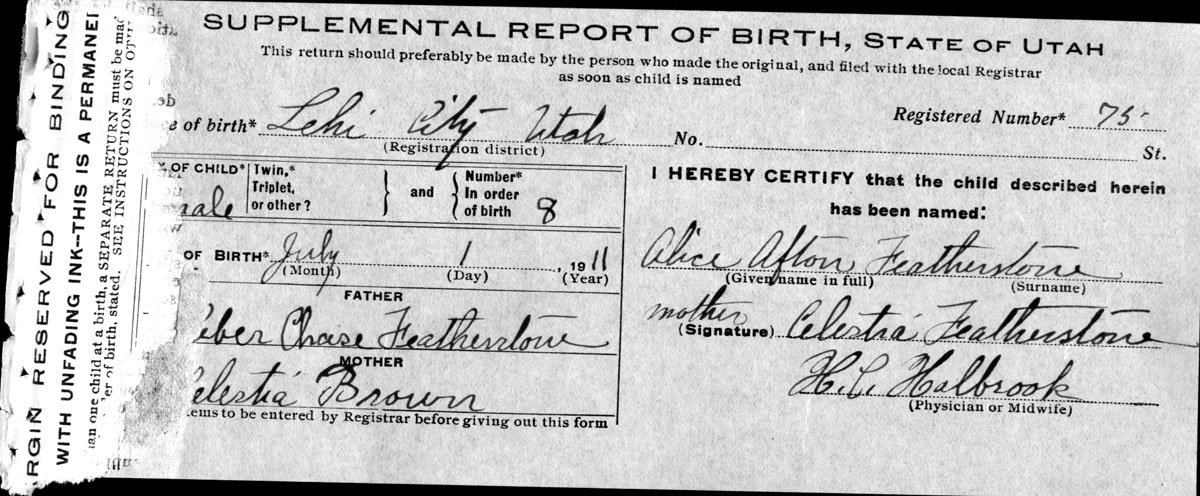 SUPPLEMENTAL REPORT OF BIRTH, STATE OF UTAH
This return should preferably be made by the person who made the original, and filed with the local Registrar
as soon as child is named
Registered Number* 75
e of birth* Lehi City Utah No. St.
(Registration district)
OF CHILD* Twin,* Triplet, or other? } and { Number* In order of birth 8
male
OF BIRTH* July 1, 1911
(Month) (Day) (Year)
FATHER
eber Chase Featherstone
MOTHER
elestia Brown
ems to be entered by Registrar before giving out this form
I HEREBY CERTIFY that the child described herein
has been named:
Alice Afton Featherstone
(Given name in full) (Surname)
mother (Signature) Celestia Featherstone
H.C. Halbrook
(Physician or Midwife)
RGIN RESERVED FOR BINDING
WITH UNFADING INK--THIS IS A PERMANE
an one child at a birth, a SEPARATE RETURN must be mad
er of birth, stated. SEE INSTRUCTIONS ON OTH